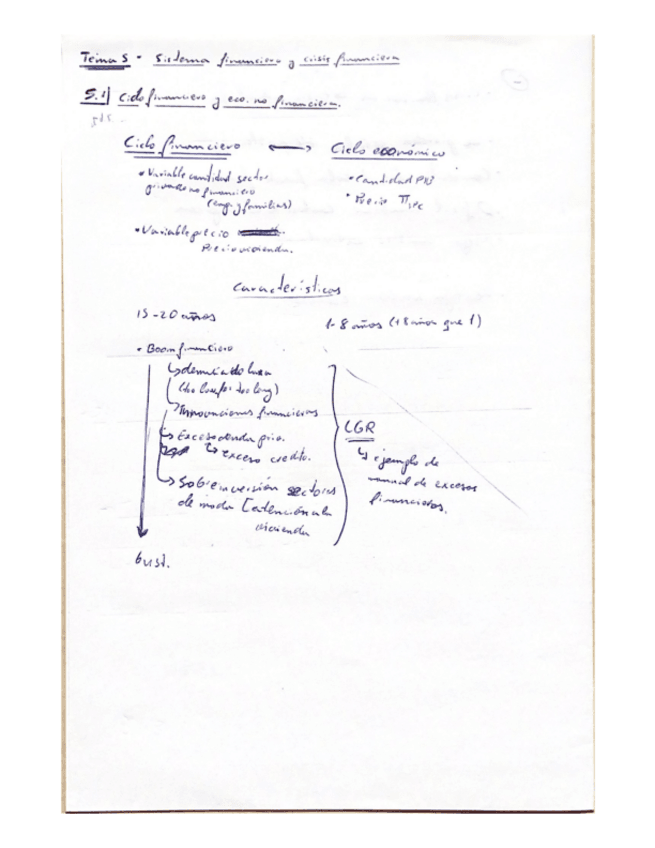 Tema 5 - Sistema financiero y crisis financiera
5.1) Ciclo financiero y eco. no financiera.
Ciclo financiero ⟷ Ciclo económico
• Variable cantidad sector
privado no financiero
(emp. y familias)
• Cantidad PIB
• Precio π IPC
• Variable precio
Precio vivienda.
Características
15-20 años
1-8 años (+8 años que 1)
• Boom financiero
(too low for too long)
Innovaciones financieras
Exceso deuda priv.
exceso credito.
Sobreinversión sectores
de moda [atención a la
vivienda
LGR
ejemplo de
manual de excesos
financieros.
bust.